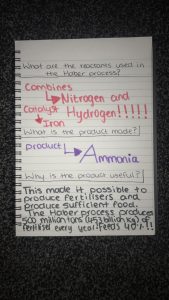 What are the reactants used in
the Haber process?
Combines
Nitrogen and
Catalyst Hydrogen!!!!!
Iron
What is the product made?
product
Ammonia
Why is the product useful?
This made it possible to
produce fertilisers and
produce sufficient food.
The Haber process produces
500 million tons (453 billion kg) of
fertiliser every year! Feeds 40%!!